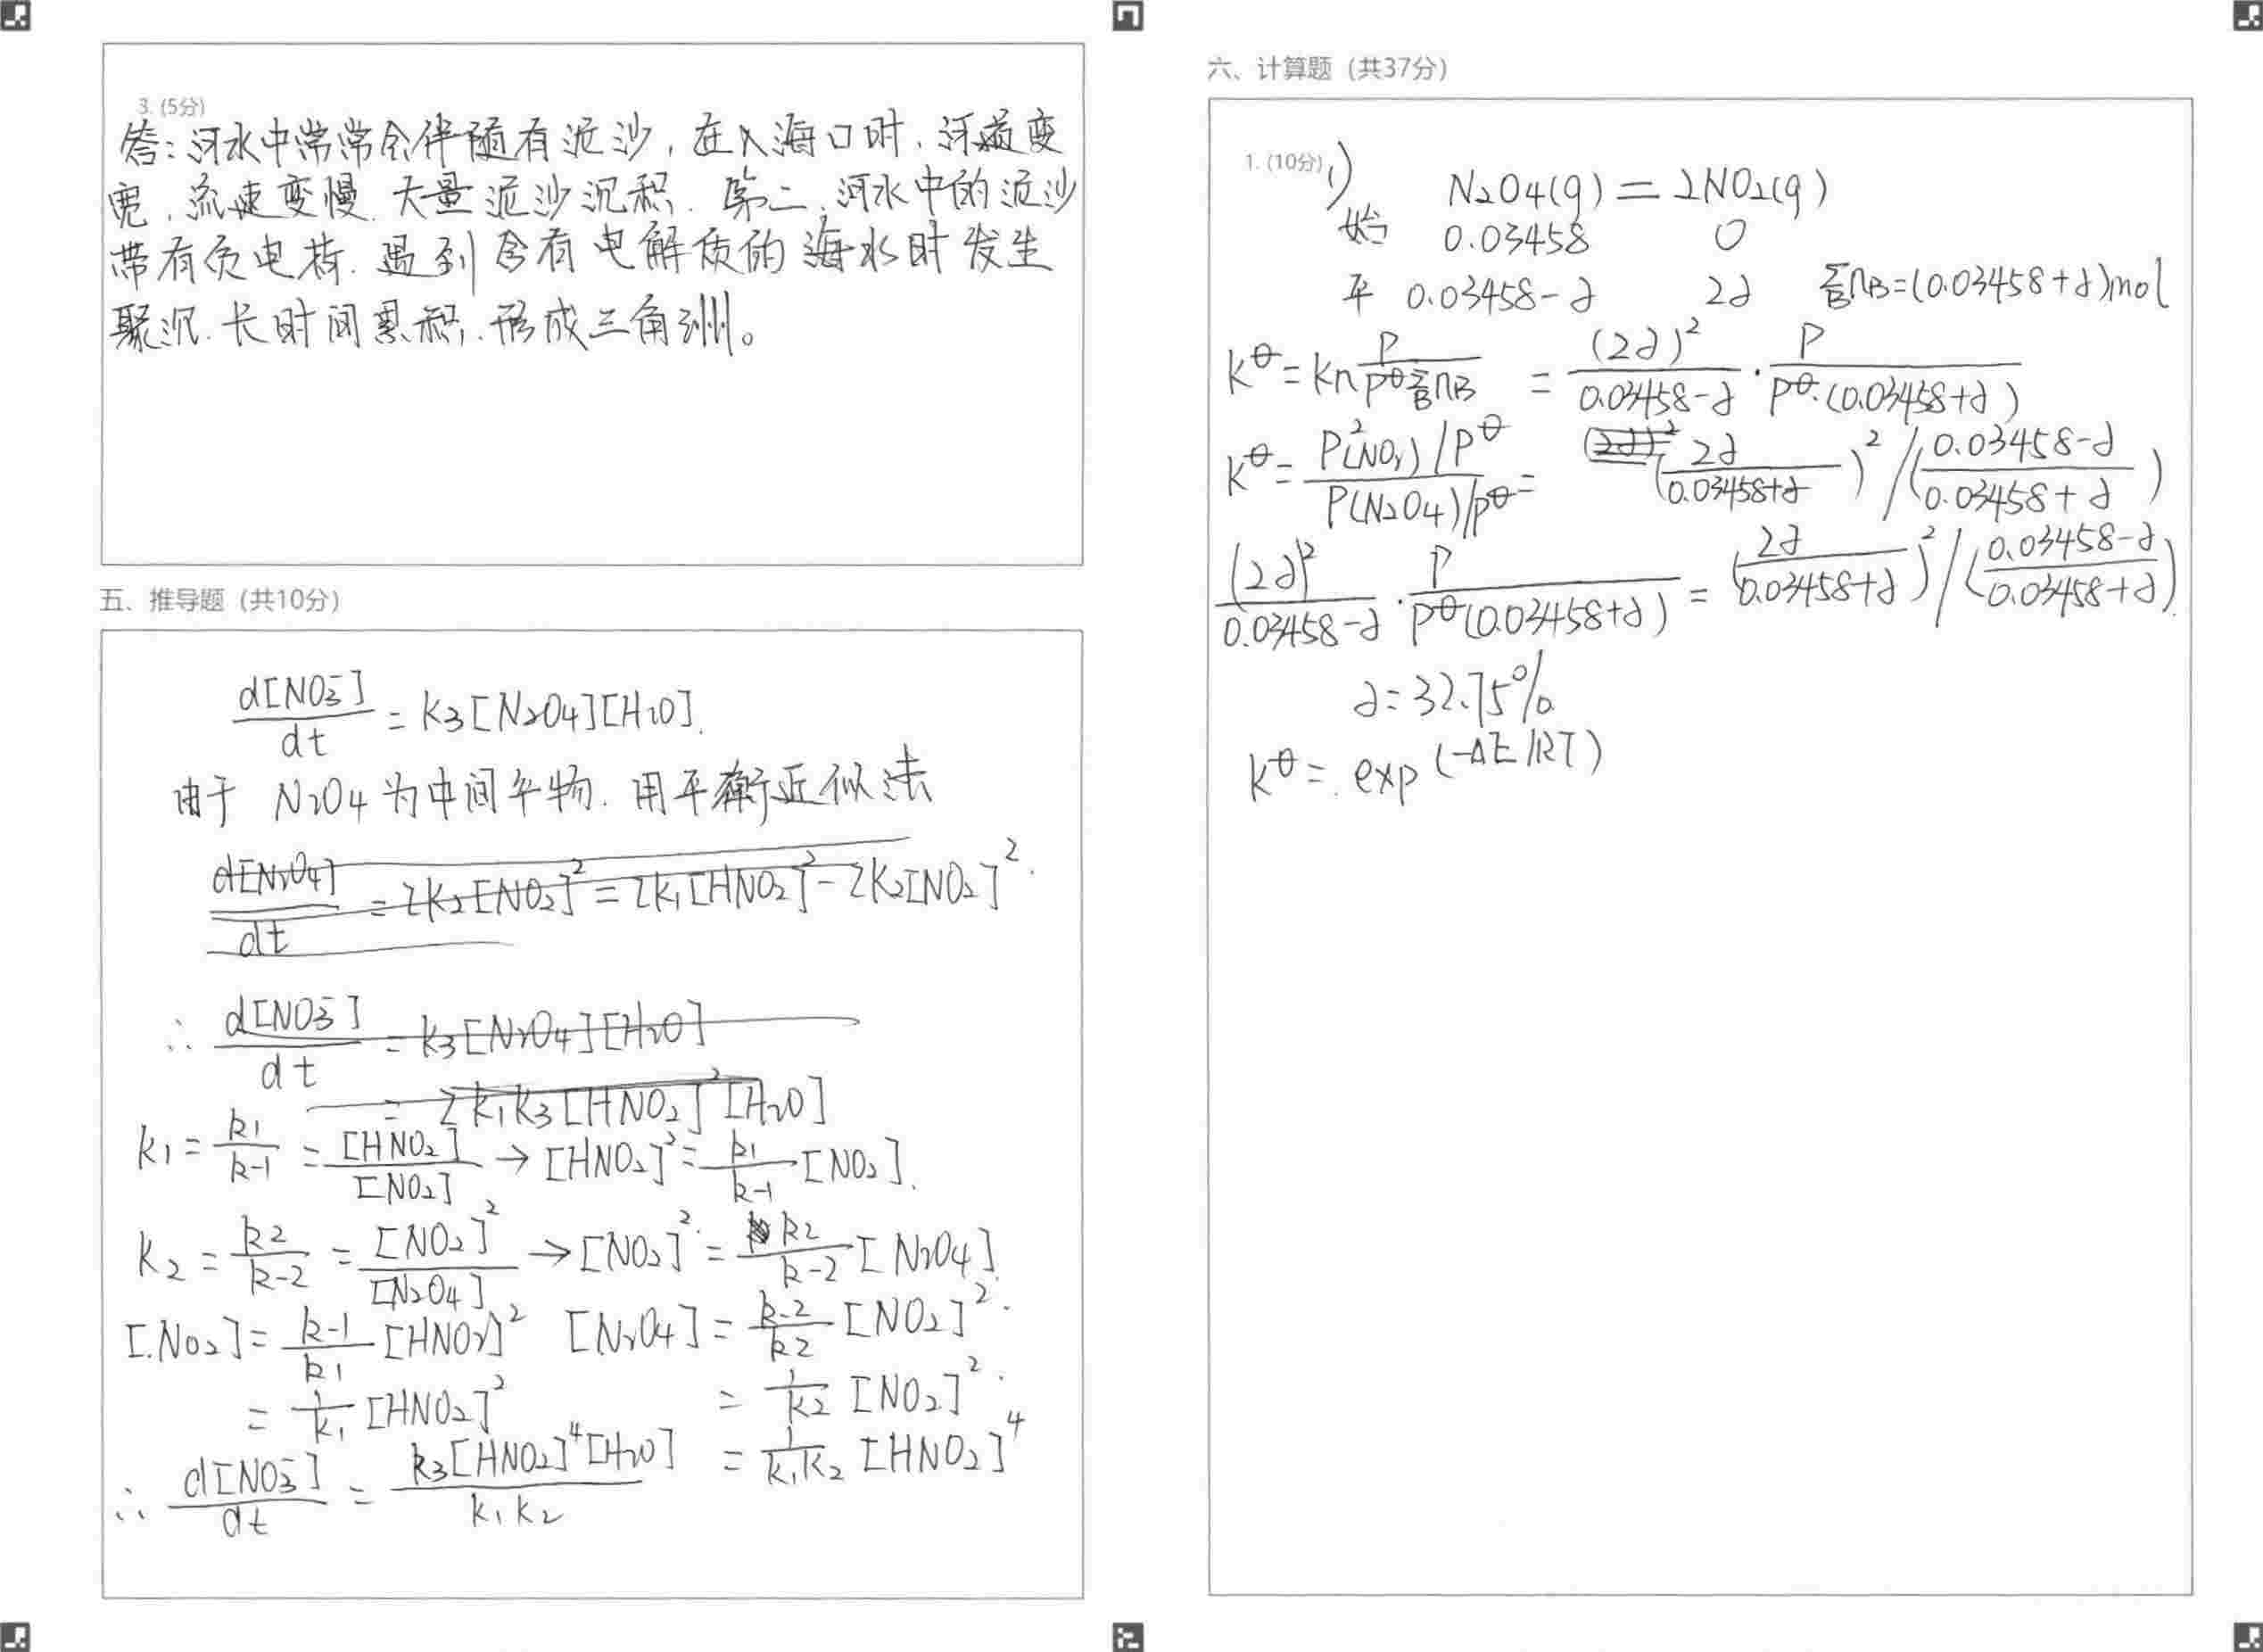 3. (5分)
答:河水中常常会伴随有泥沙,在入海口时,河道变
宽,流速变慢.大量泥沙沉积.第二,河水中的泥沙
带有负电荷.遇到含有电解质的海水时发生
聚沉.长时间累积,形成三角洲。
五、推导题(共10分)
d[NO₃⁻]/dt = k₃[N₂O₄][H₂O].
由于 N₂O₄为中间产物.用平衡近似法
d[N₂O₄]/dt = 2k₂[NO₂]² = 2k₁[HNO₂]² - 2k₂[NO₂]².
∴ d[NO₃⁻]/dt = k₃[N₂O₄][H₂O]
= 2k₁k₃[HNO₂]²[H₂O]
K₁ = k₁/k₋₁ = [HNO₂]²/[NO₂] → [HNO₂]² = k₁/k₋₁ [NO₂].
K₂ = k₂/k₋₂ = [NO₂]²/[N₂O₄] → [NO₂]² = k₂/k₋₂ [N₂O₄].
[NO₂] = k₋₁/k₁ [HNO₂]² [N₂O₄] = k₋₂/k₂ [NO₂]².
= 1/K₁ [HNO₂]² = 1/K₂ [NO₂]².
∴ d[NO₃⁻]/dt = k₃[HNO₂]⁴[H₂O]/K₁K₂ = 1/K₁K₂ [HNO₂]⁴
六、计算题(共37分)
1. (10分) 1)
N₂O₄(g) = 2NO₂(g)
始 0.03458 0
平 0.03458-∂ 2∂ Σ_B n_B=(0.03458+∂)mol
K^θ = Kn P/(P^θ Σ_B n_B) = (2∂)²/(0.03458-∂) · P/(P^θ·(0.03458+∂))
K^θ = (P²(NO₂)/P^θ)/(P(N₂O₄)/P^θ) = (2∂/(0.03458+∂))²/((0.03458-∂)/(0.03458+∂))
(2∂)²/(0.03458-∂) · P/(P^θ(0.03458+∂)) = (2∂/(0.03458+∂))²/((0.03458-∂)/(0.03458+∂)).
∂=32.75%.
K^θ = exp(-ΔE/RT)